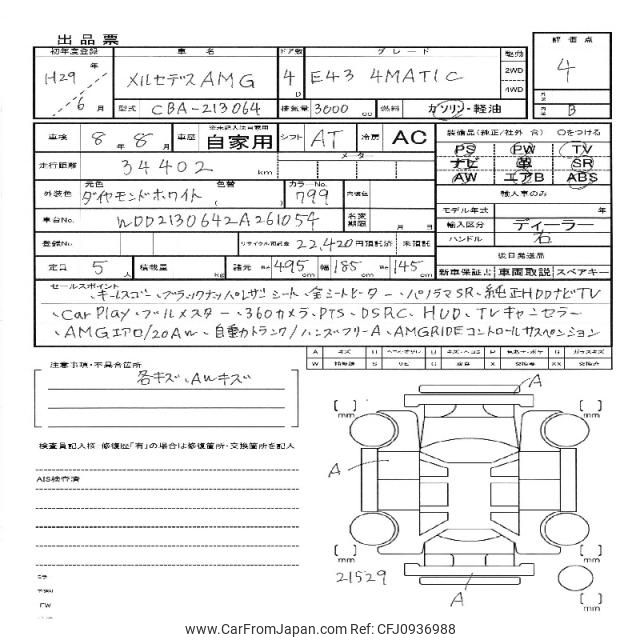 出品票
初年度登録 車名 ドア数 グレード 駆動 評価点
H29年 6月 メルセデスAMG 4D E43 4MATIC 2WD 4WD 4
型式 CBA-213064 排気量 3000cc 燃料 ガソリン・軽油 B
車検 8年8月 車歴 自家用 シフト AT 冷房 AC 装備品(純正/社外 含) ○をつける
PS PW TV
走行距離 34402 km メーター ナビ 革 SR
AW エアB ABS
外装色 元色 ダイヤモンドホワイト 色替 ( ) カラーNo. 799 内装色 輸入車のみ
モデル年式 年
車台No. WDD2130642A261054 名変期限 月 日 輸入区分 ディーラー
ハンドル 右
登録No. リサイクル預託金 22,420円預託済 未預託 後日発送品
定員 5人 積載量 kg 諸元 長 495cm 幅 185cm 高 145cm 新車保証書 車両取説 スペアキー
セールスポイント
、キーレスゴー、ブラックナッパレザーシート、全シートヒーター、パノラマSR、純正HDDナビTV
、Car Play、ブルメスター、360カメラ、PTS、DSRC、HUD、TVキャンセラー
、AMGエアロ/20AW、自動トランク/ハンズフリーA、AMGRIDEコントロールサスペンション
注意事項・不具合箇所
各キズ、AWキズ
検査員記入枠 修復歴「有」の場合は修復箇所・交換箇所を記入
AIS検査済
A キズ
W S サビ X 要交換 XX 交換済
A
[ ] mm [ ] mm
A
[ ] mm [ ] mm
21529
A
www.CarFromJapan.com | Ref:CFJ0936988